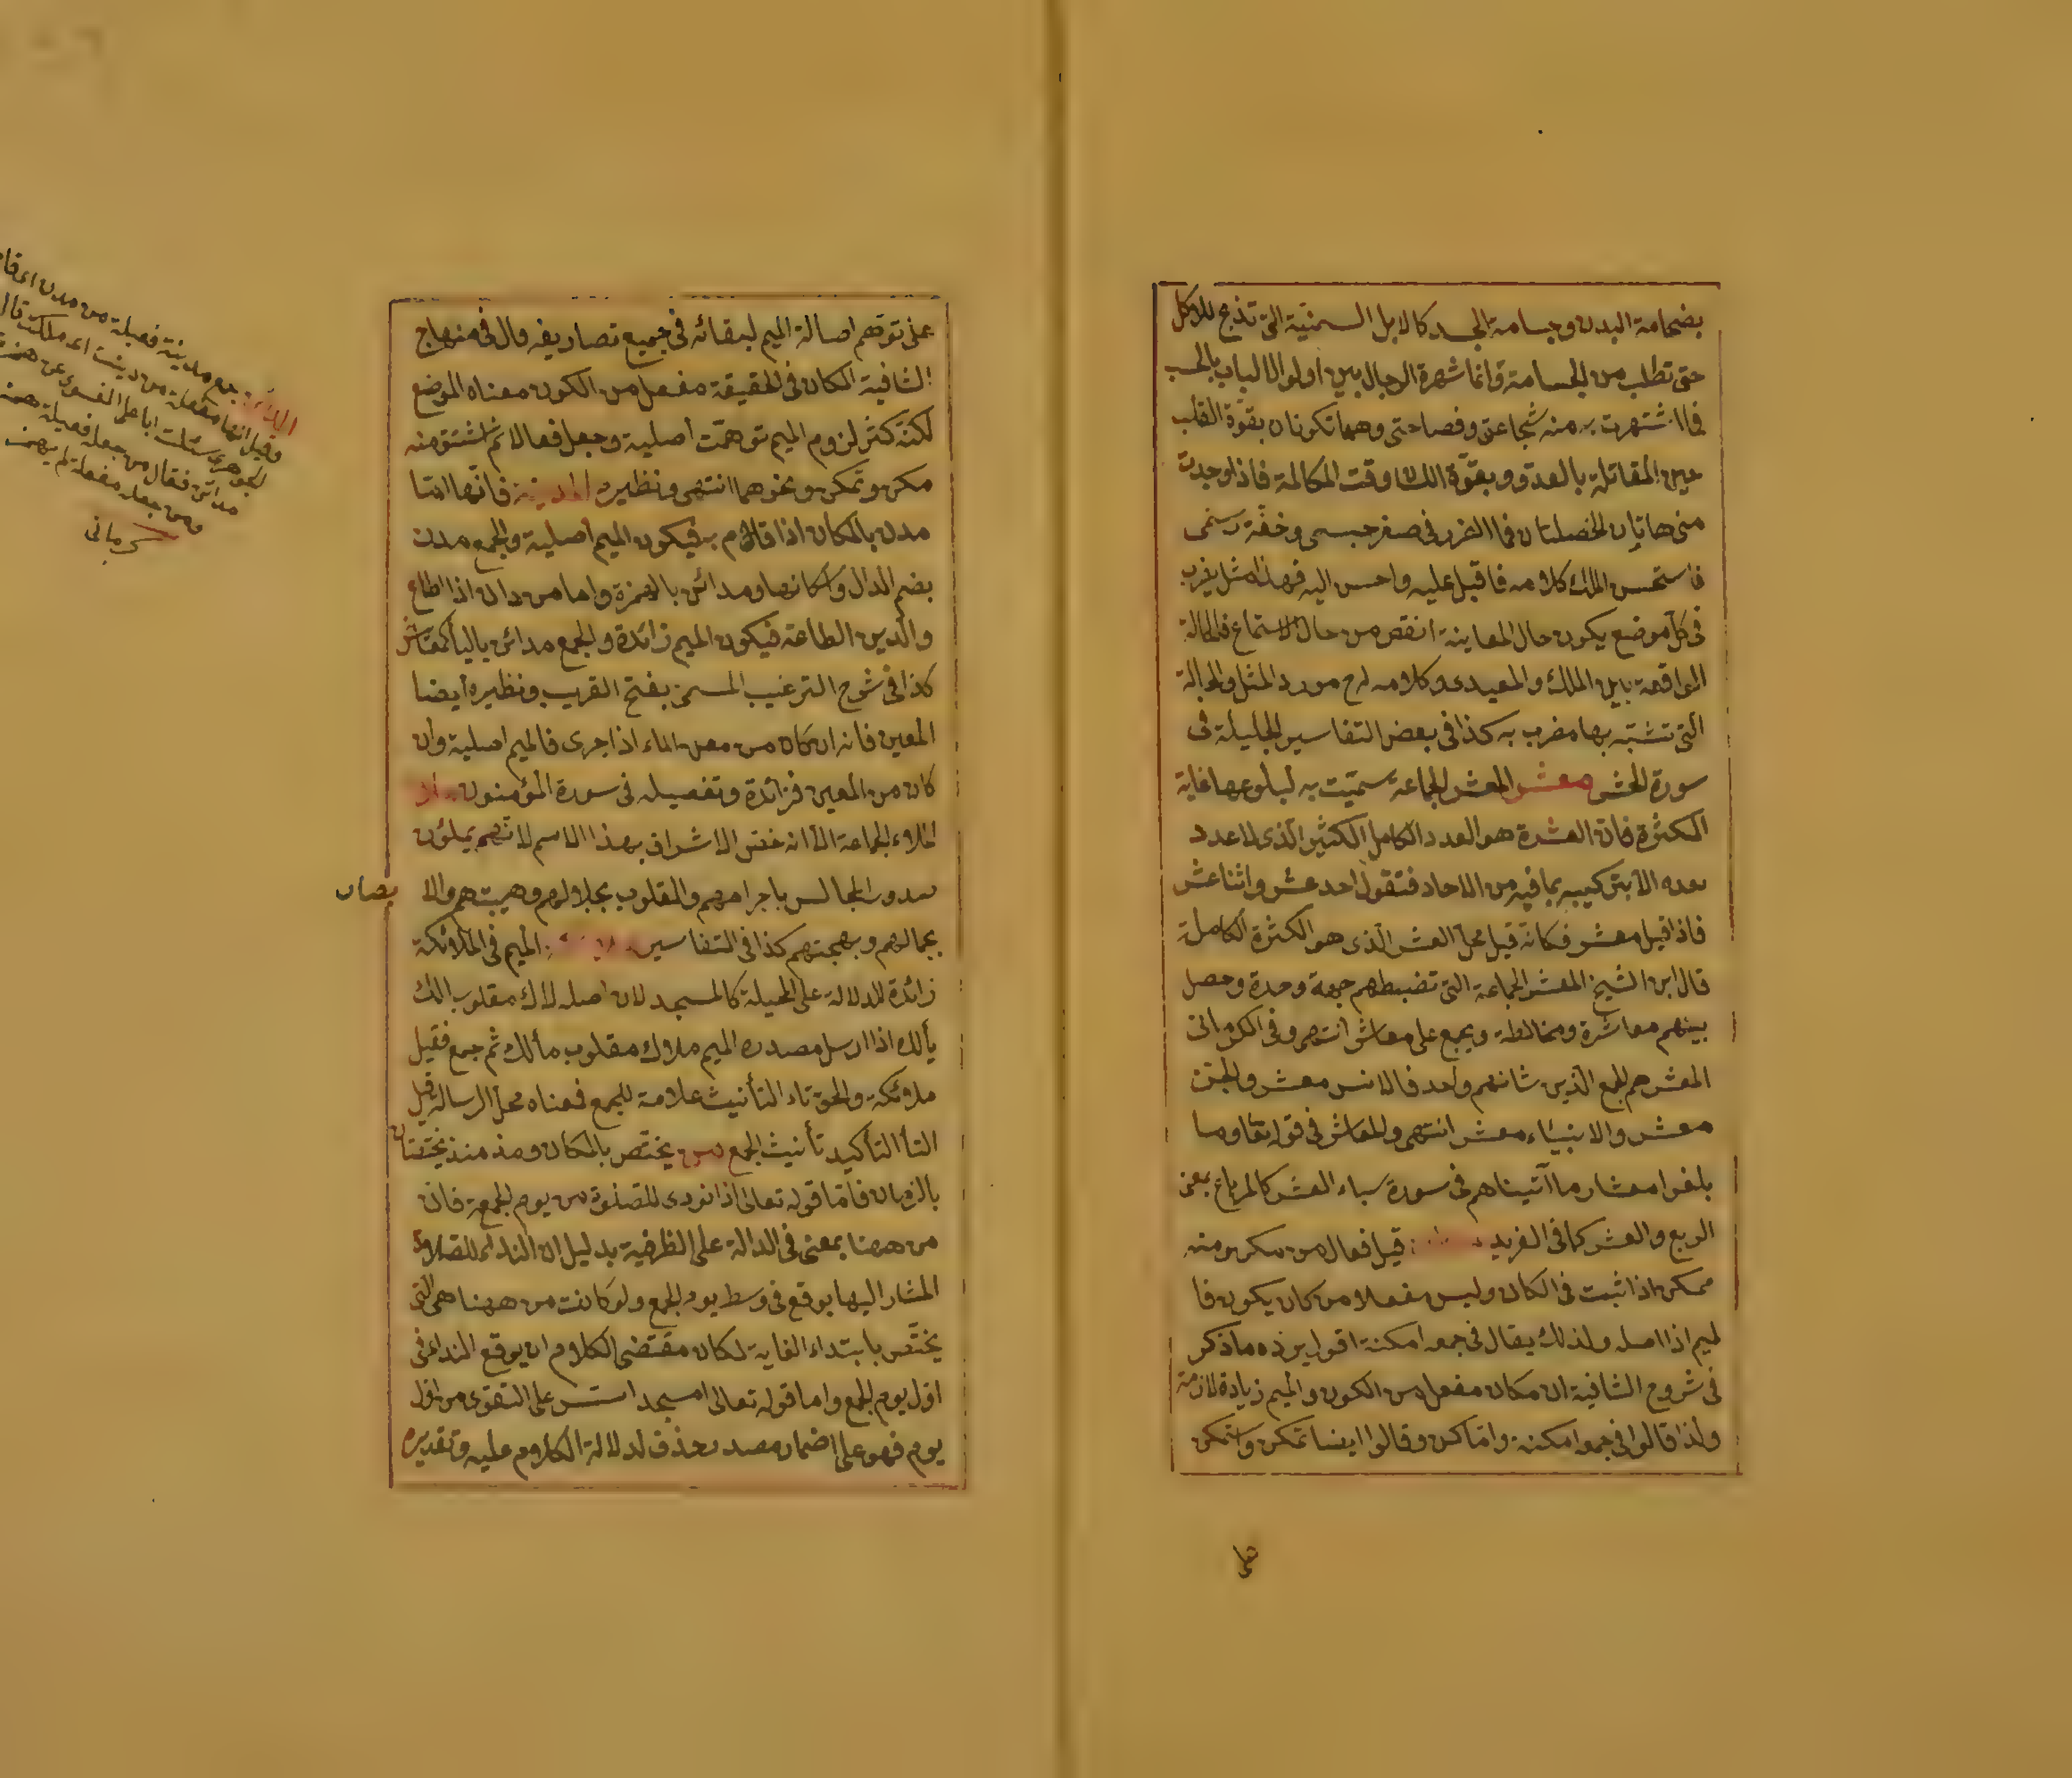 بضخامة البدن وجسامة الجسد كالابل السمينة التى تذبح للاكل
حتى تطلب من الجسامة وانما شهرة الرجال بين اولوا الالباب بالحسب
فما اشتهرت به منه شجاعتى وفصاحتى وهما تكونان بقوة القلب
حين المقاتلة بالعدو وبقوة اللسان وقت المكالمة فاذا وجدت
منى هاتان الخصلتان فما الضرر فى صغر جسمى وخفة
فاستحسن الملك كلامه فاقبل عليه واحسن اليه فهذا مثل يضرب
فى كل موضع يكون حال المعاينة انقص من حال الاستماع فالحالة
الواقعة بين الملك والمعيدى وكلامه له مورد المثل والحالة
التى تشبه بها مضرب به كذا فى بعض التفاسير الجليلة فى
سورة الحشر معشر المعشر الجماعة سميت به لبلوغها غاية
الكثرة فان العشرة هو العدد الكامل الكثير الذى لا عدد
بعده الا بتركيبه بما فيه من الاحاد فتقول احد عشر واثنا عشر
فاذا قيل معشر فكانه قيل محل العشر الذى هو الكثرة الكاملة
قال ابن الشيخ المعشر الجماعة التى تضبطهم جهة وحدة وحصل
بينهم معاشرة ومخالطة ويجمع على معاشر انتهى وفى الكرمانى
المعشر هم الجمع الذين شانهم واحد فالانس معشر والجن
معشر والانبياء معشر انتهى والمعاشر فى قوله تعا وما
بلغوا معشار ما آتيناهم فى سورة سباء العشر كالمرباع بمعنى
الربع والعشر كما فى الفريد قيل فعال من مكن ومنه
ممكن اذا ثبت فى الكان وليس مفعلا من كان يكون فا
لميم اذا اصله ولذلك يقال فى جمعه امكنة اقول يرده ما ذكر
فى شروح الشافية ان مكان مفعل من الكون والميم زيادة لازمة
ولذا قالوا فى جمعه امكنة واماكن وقالوا ايضا تمكن واستمكن
على
على توهم اصالة الميم لبقائه فى جميع تصاريفه قال فى منهاج
الشافية المكان فى الحقيقة مفعل من الكون معناه الموضع
لكنه كثر لزوم الميم توهمت اصلية وجعل فعالا ثم اشتق منه
مكن وتمكن ونحوهما انتهى ونظيره المدينة فانها اما
مدن بالمكان اذا قام به فيكون الميم اصلية والجمع مدن
بضم الدال واسكانها ومدائن بالهمزة واما من دان اذا اطاع
والدين الطاعة فيكون الميم زائدة والجمع مداين بالياء كمعايش
كذا فى شرح الترغيب المسمى بفتح القريب ونظيره ايضا
المعين فانه ان كان من معن الماء اذا جرى فالميم اصلية وان
كان من المعين فزائدة وتفصيله فى سورة المؤمنون
الملاء الجماعة الا انه خص الاشراف بهذا الاسم لانهم يملؤن
صدور المجالس باجرامهم والقلوب بجلالهم وهيبتهم والا
بصار
بجمالهم وبهجتهم كذا فى التفاسير الميم فى الملائكة
زائدة للدلالة على الحيلة كالمسجد لان اصله لاك مقلوب الك
يألك اذا ارسل مصدره الميم ملاك مقلوب مألك ثم جمع فقيل
ملائكة والحق تاء التأنيث علامة للجمع فمعناه محل الرسالة قيل
التاء لتأكيد تأنيث الجمع من يختص بالمكان ومذ منذ يختصان
بالزمان فاما قوله تعالى اذا نودى للصلوة من يوم الجمعة فان
من ههنا بمعنى فى الدالة على الظرفية بدليل ان النداء للصلاة
المشار اليها يوقع فى وسط يوم الجمع ولو كانت من ههنا هى التى
يختص بابتداء الغاية لكان مقتضى الكلام ان يوقع النداء فى
اول يوم الجمع واما قوله تعالى لمسجد اسس على التقوى من اول
يوم فهو على اضمار مصدر حذف لدلالة الكلام عليه وتقديره
المدائن جمع مدينة فعيلة من مدن اى قام
وقيل انها مفعلة من دينت اى ملكت قال
الجوهرى سئلت ابا على الفسوى عن همزة
مدائن فقال من جعله فعيلة همز
ومن جعله مفعلة لم يهمز
كرمانى